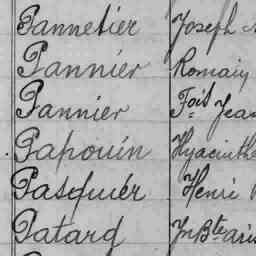 Pannetier Joseph
Pannier Romain
Pannier Fois Jean
Papouin Hyacinthe
Pasquier Henri
Patard Jn Bte